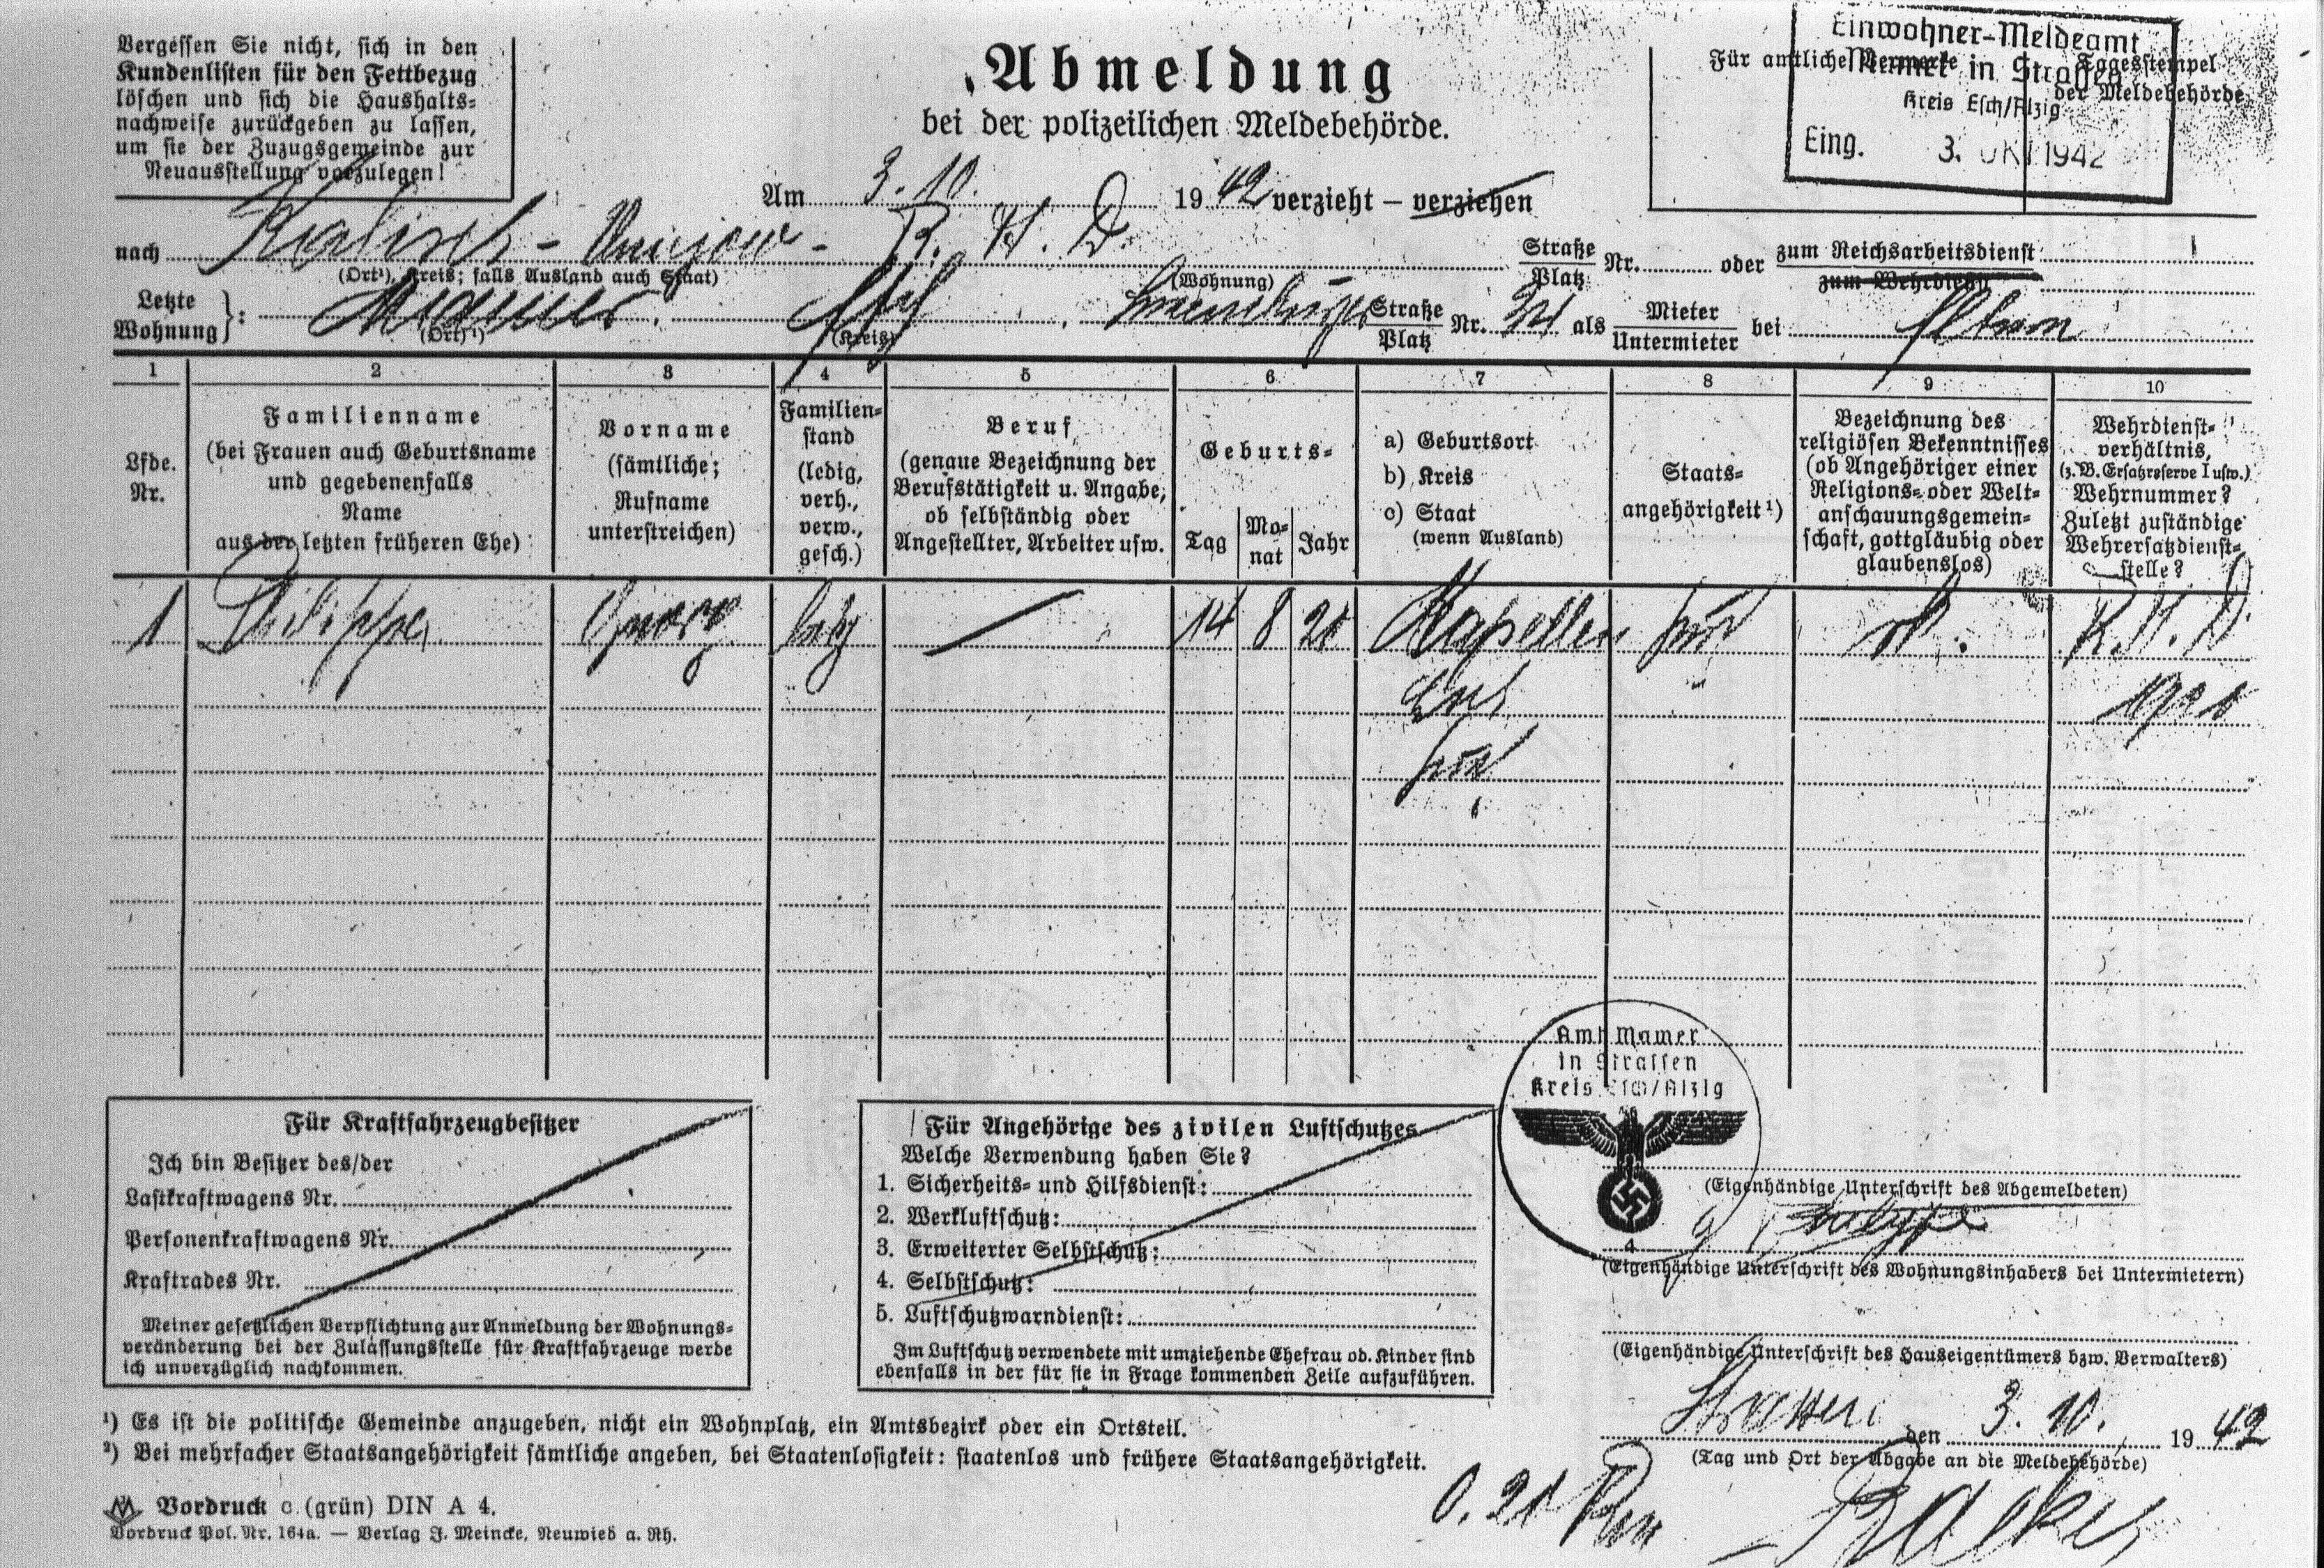 Vergessen Sie nicht, sich in den
Kundenlisten für den Fettbezug
löschen und sich die Haushalts-
nachweise zurückgeben zu lassen,
um sie der Zuzugsgemeinde zur
Neuausstellung vorzulegen!
Abmeldung
bei der polizeilichen Meldebehörde.
Für amtliche Vermerke
Tagesstempel
der Meldebehörde
Einwohner-Meldeamt
Mamer in Strassen
Kreis Esch/Alzig
Eing. 3. OKT 1942
Am 3. 10. 1942 verzieht – verziehen
nach Kalisch - R. A. D. Straße Platz Nr. oder zum Reichsarbeitsdienst
zum Wehrdienst
(Ort¹), Kreis; falls Ausland auch Staat) (Wohnung)
Letzte Wohnung: Mamer. Esch. Luxemburger Straße Platz Nr. als Mieter Untermieter bei Eltern
(Ort)¹) (Kreis)
1 2 3 4 5 6 7 8 9 10
Lfde. Nr.
Familienname
(bei Frauen auch Geburtsname
und gegebenenfalls
Name
aus der letzten früheren Ehe)
Vorname
(sämtliche;
Rufname
unterstreichen)
Familien-
stand
(ledig,
verh.,
verw.,
gesch.)
Beruf
(genaue Bezeichnung der
Berufstätigkeit u. Angabe,
ob selbständig oder
Angestellter, Arbeiter usw.
Geburts-
Tag Mo-nat Jahr
a) Geburtsort
b) Kreis
c) Staat
(wenn Ausland)
Staats-
angehörigkeit¹)
Bezeichnung des
religiösen Bekenntnisses
(ob Angehöriger einer
Religions- oder Welt-
anschauungsgemein-
schaft, gottgläubig oder
glaubenslos)
Wehrdienst-
verhältnis,
(z. B. Ersatzreserve I usw.)
Wehrnummer?
Zuletzt zuständige
Wehrersatzdienst-
stelle?
1 Philippe Georg ledig 14 8 21 Kapellen lux rk. R. A. D.
Esch 1921
lux
Amt Mamer
in Strassen
Kreis Esch/Alzig
4
Für Kraftfahrzeugbesitzer
Ich bin Besitzer des/der
Lastkraftwagens Nr.
Personenkraftwagens Nr.
Kraftrades Nr.
Meiner gesetzlichen Verpflichtung zur Anmeldung der Wohnungs-
veränderung bei der Zulassungsstelle für Kraftfahrzeuge werde
ich unverzüglich nachkommen.
Für Angehörige des zivilen Luftschutzes
Welche Verwendung haben Sie?
1. Sicherheits- und Hilfsdienst:
2. Werkluftschutz:
3. Erweiterter Selbstschutz:
4. Selbstschutz:
5. Luftschutzwarndienst:
Im Luftschutz verwendete mit umziehende Ehefrau od. Kinder sind
ebenfalls in der für sie in Frage kommenden Zeile aufzuführen.
(Eigenhändige Unterschrift des Abgemeldeten)
(Eigenhändige Unterschrift des Wohnungsinhabers bei Untermietern)
(Eigenhändige Unterschrift des Hauseigentümers bzw. Verwalters)
Strassen den 3. 10. 1942
(Tag und Ort der Abgabe an die Meldebehörde)
¹) Es ist die politische Gemeinde anzugeben, nicht ein Wohnplatz, ein Amtsbezirk oder ein Ortsteil.
²) Bei mehrfacher Staatsangehörigkeit sämtliche angeben, bei Staatenlosigkeit: staatenlos und frühere Staatsangehörigkeit.
Vordruck c (grün) DIN A 4.
Vordruck Pol. Nr. 164a. — Verlag J. Meincke, Neuwied a. Rh.